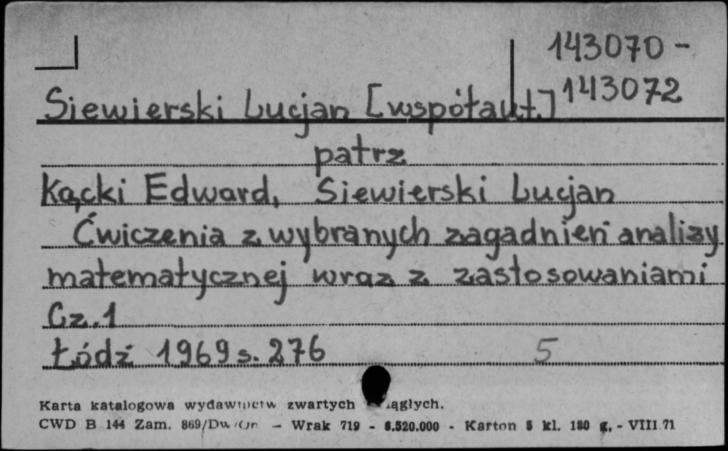 143070 -
143072
Siewierski Lucjan [współaut.]
patrz
Kącki Edward, Siewierski Lucjan
Ćwiczenia z wybranych zagadnień analizy
matematycznej wraz z zastosowaniami
Cz. 1
Łódź 1969 s. 276 5
Karta katalogowa wydawnictw zwartych
CWD B 144 Zam. 869/ - Wrak 719 - 6.520.000 - Karton 5 kl. 180 g. - VIII 71